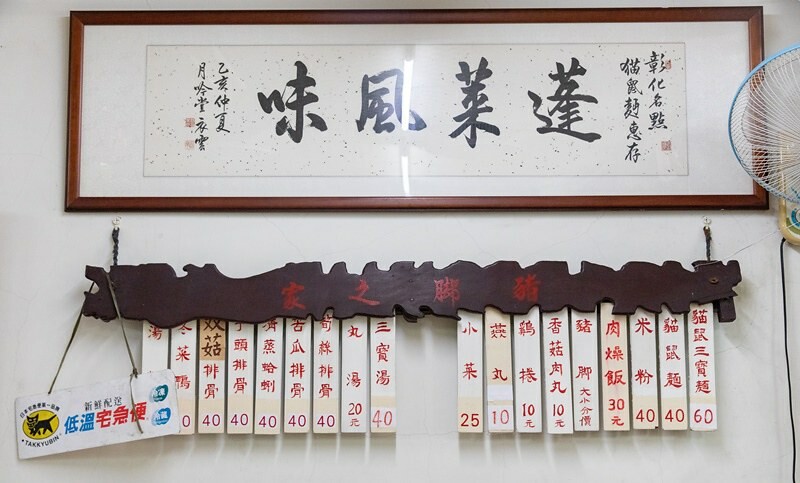 彰化名點
貓鼠麵惠存
蓬萊風味
乙亥仲夏
月吟堂
豬腳之家
貓鼠三寶麵 60
貓鼠麵 40
米粉 40
肉燥飯 30元
豬腳 大小分價
香菇肉丸 10元
鷄捲 10元
燕丸 10
小菜 25
三寶湯 40
丸湯 20元
筍絲排骨 40
苦瓜排骨 40
蒸蛤蜊 40
頭排骨 40
双菇排骨 40
冬菜鴨 0
湯
新鮮配送
低溫宅急便
TAKKYUBIN
冷凍
冷藏